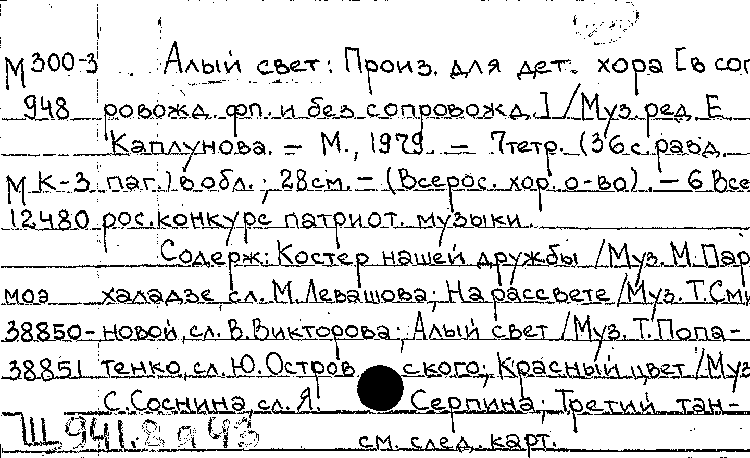 М300-3 Алый свет: Произ. для дет. хора [в соп
948 ровожд. фп. и без сопровожд.] / Муз. ред. Е
Каплунова. — М., 1979. — 7тетр. (36с. разд.
МК-3 паг.) в обл.; 28см. — (Всерос. хор. о-во). — 6 Все
12480 рос. конкурс патриот. музыки.
Содерж: Костер нашей дружбы / Муз. М. Пар
моз халадзе, сл. М. Левашова; На рассвете / Муз. Т. Сми
38850- новой, сл. В. Викторова; Алый свет / Муз. Т. Попа-
38851 тенко, сл. Ю. Островского; Красный цвет / Муз
С. Соснина, сл. Я. Серпина; Третий тан-
Щ941.8я43 см. след. карт.